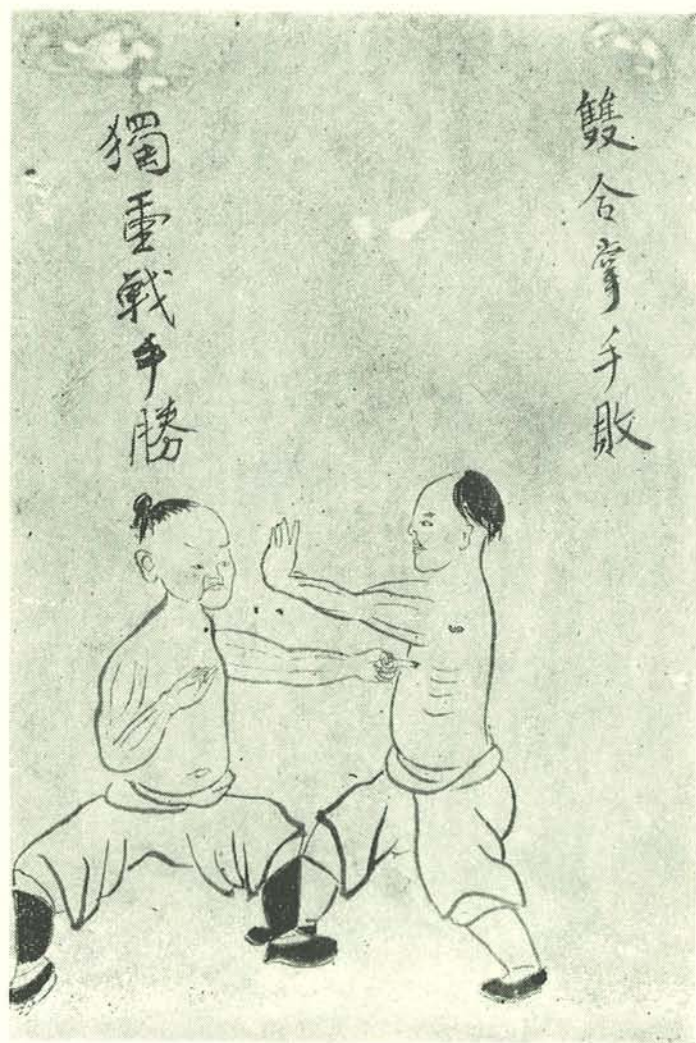 雙合掌手敗
獨重戰手勝